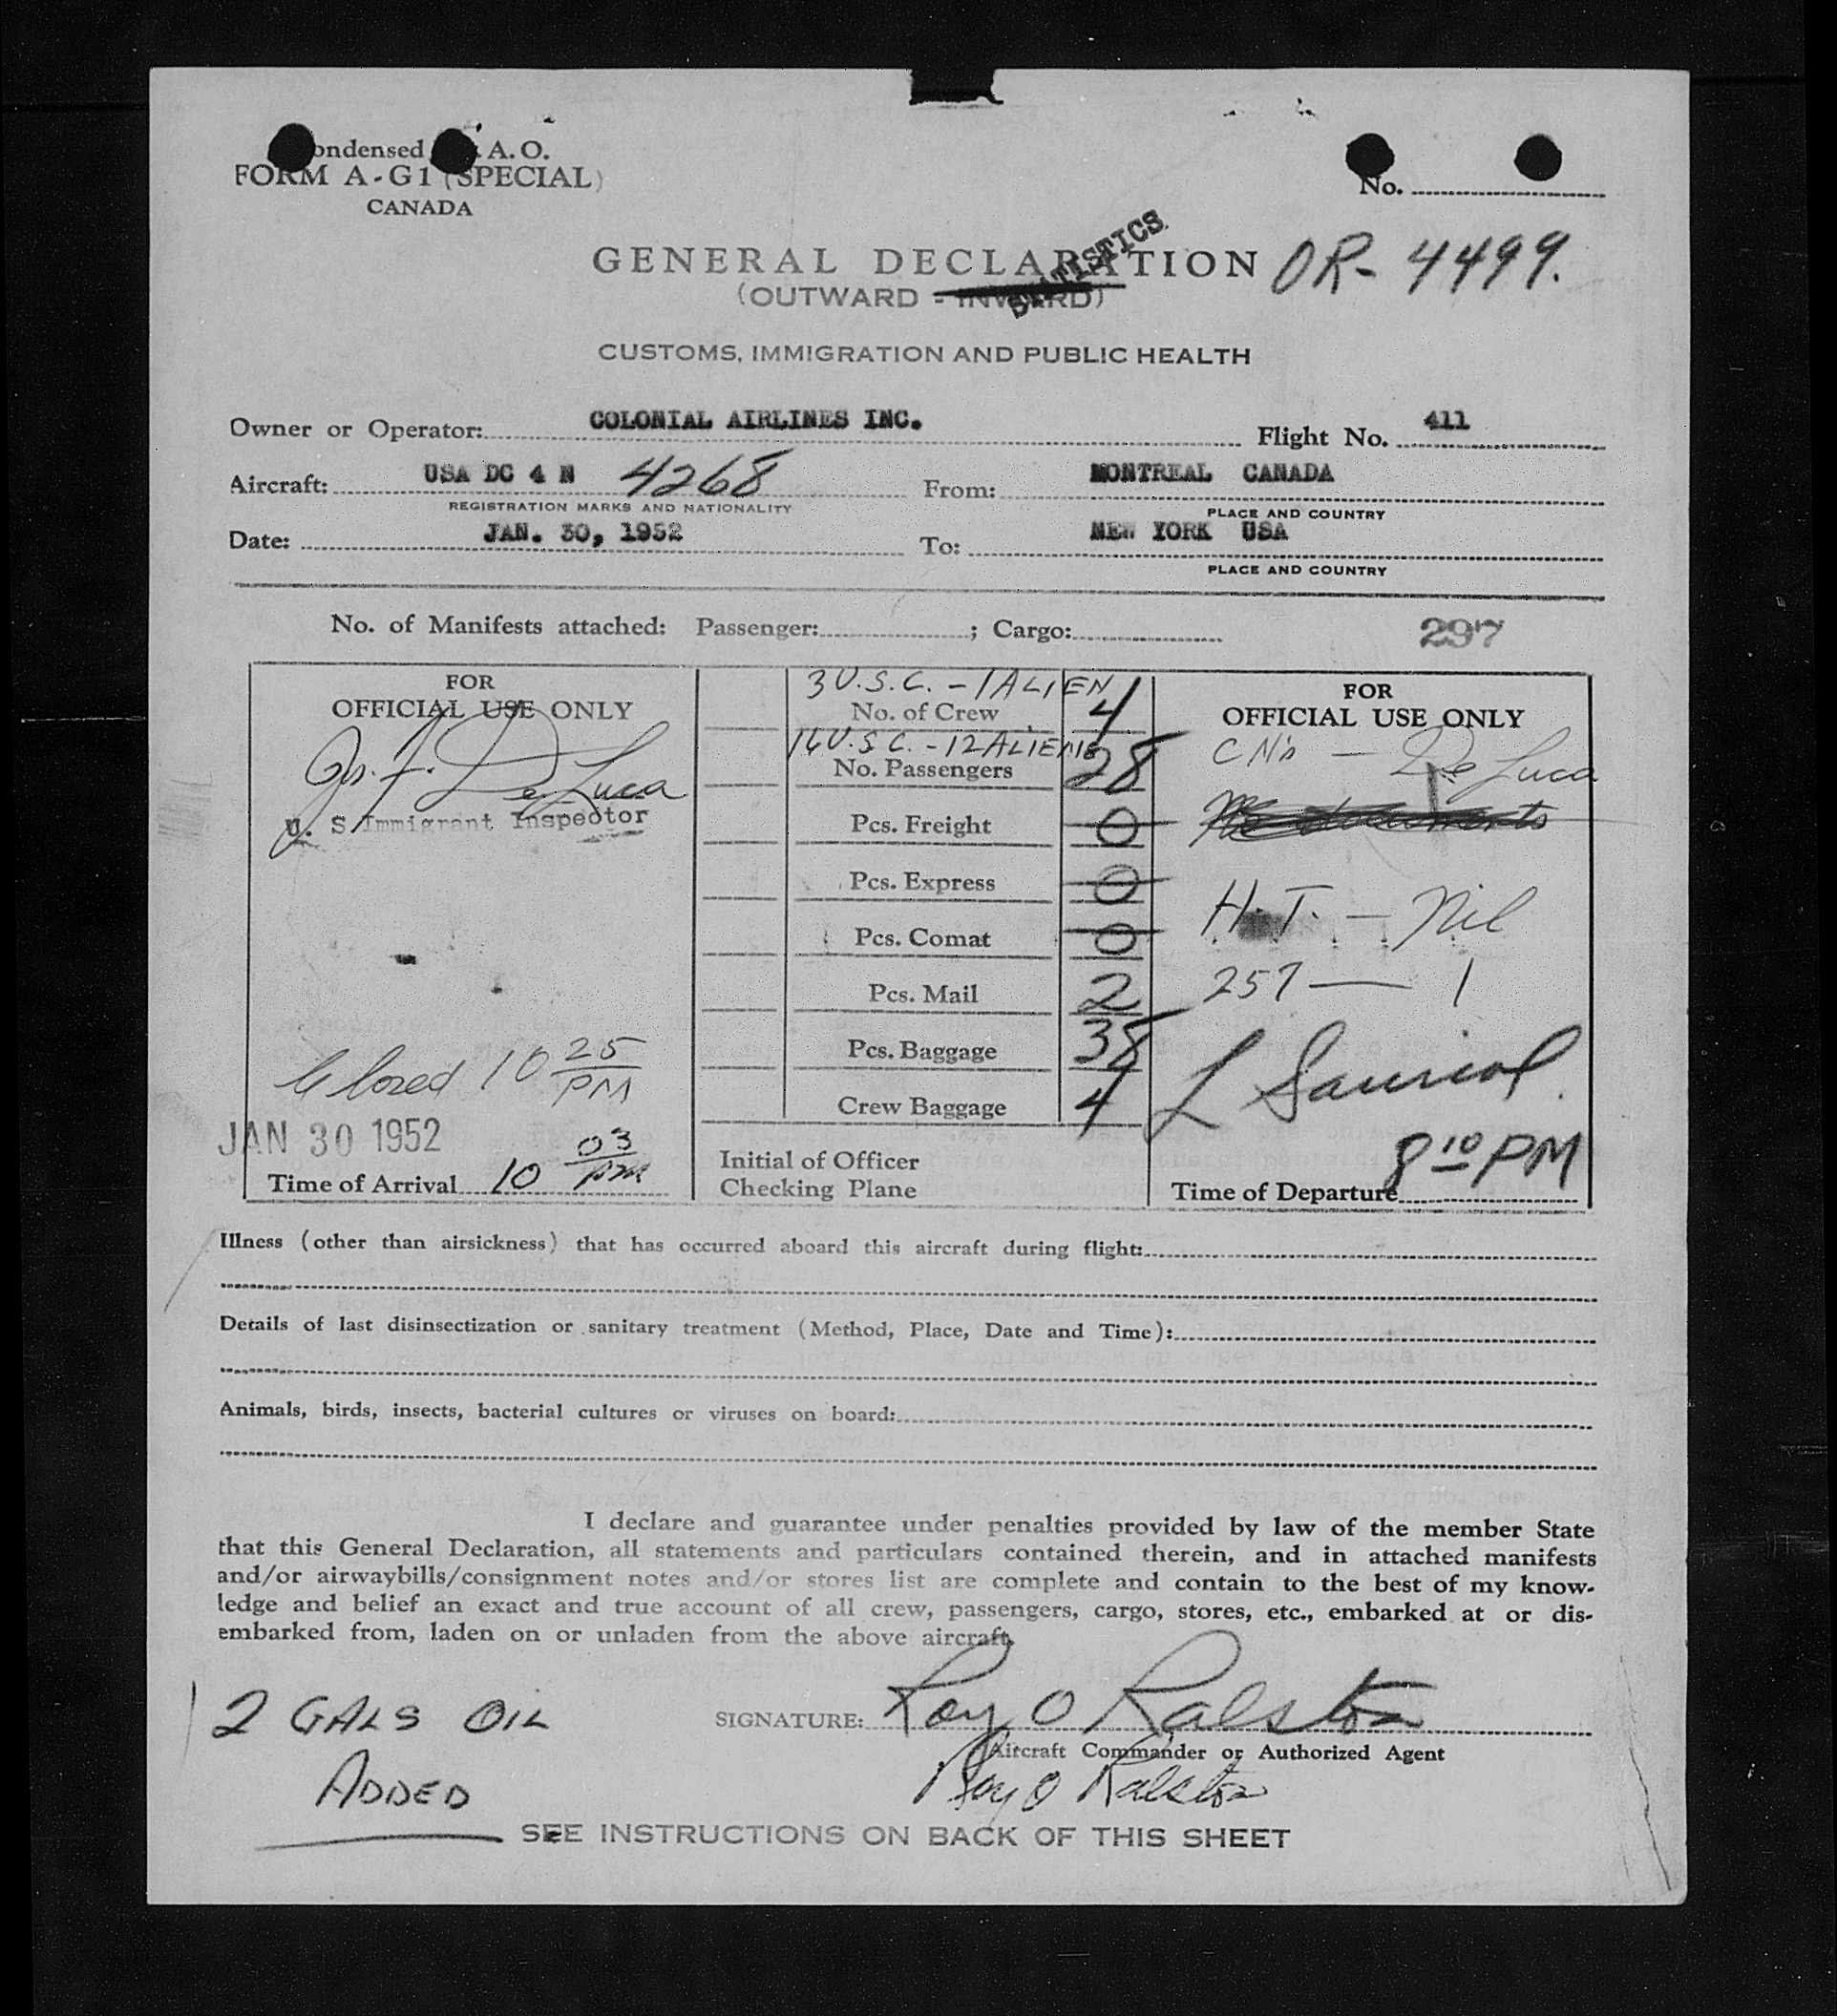 ondensed A. O.
FORM A-G1 (SPECIAL)
CANADA
No.
GENERAL DECLARATION OR- 4499.
STATISTICS
(OUTWARD - INWARD)
CUSTOMS, IMMIGRATION AND PUBLIC HEALTH
Owner or Operator: COLONIAL AIRLINES INC. Flight No. 411
Aircraft: USA DC 4 N 4268 From: MONTREAL CANADA
REGISTRATION MARKS AND NATIONALITY PLACE AND COUNTRY
Date: JAN. 30, 1952 To: NEW YORK USA
PLACE AND COUNTRY
No. of Manifests attached: Passenger: ; Cargo: 297
FOR
OFFICIAL USE ONLY
De Luca
U. S Immigrant Inspector
Closed 10 25 PM
JAN 30 1952
Time of Arrival 10 03 PM
3 U.S.C. - 1 ALIEN
No. of Crew 4
16 U.S C. - 12 ALIENS
No. Passengers 28
Pcs. Freight 0
Pcs. Express 0
Pcs. Comat 0
Pcs. Mail 2
Pcs. Baggage 38
Crew Baggage 4
Initial of Officer
Checking Plane
FOR
OFFICIAL USE ONLY
De Luca
H.T. - Nil
257 — 1
8 10 PM
Time of Departure
Illness (other than airsickness) that has occurred aboard this aircraft during flight:
Details of last disinsectization or sanitary treatment (Method, Place, Date and Time):
Animals, birds, insects, bacterial cultures or viruses on board:
I declare and guarantee under penalties provided by law of the member State
that this General Declaration, all statements and particulars contained therein, and in attached manifests
and/or airwaybills/consignment notes and/or stores list are complete and contain to the best of my know-
ledge and belief an exact and true account of all crew, passengers, cargo, stores, etc., embarked at or dis-
embarked from, laden on or unladen from the above aircraft.
2 GALS OIL
ADDED
SIGNATURE: Roy O Ralston
Aircraft Commander or Authorized Agent
Roy O Ralston
SEE INSTRUCTIONS ON BACK OF THIS SHEET